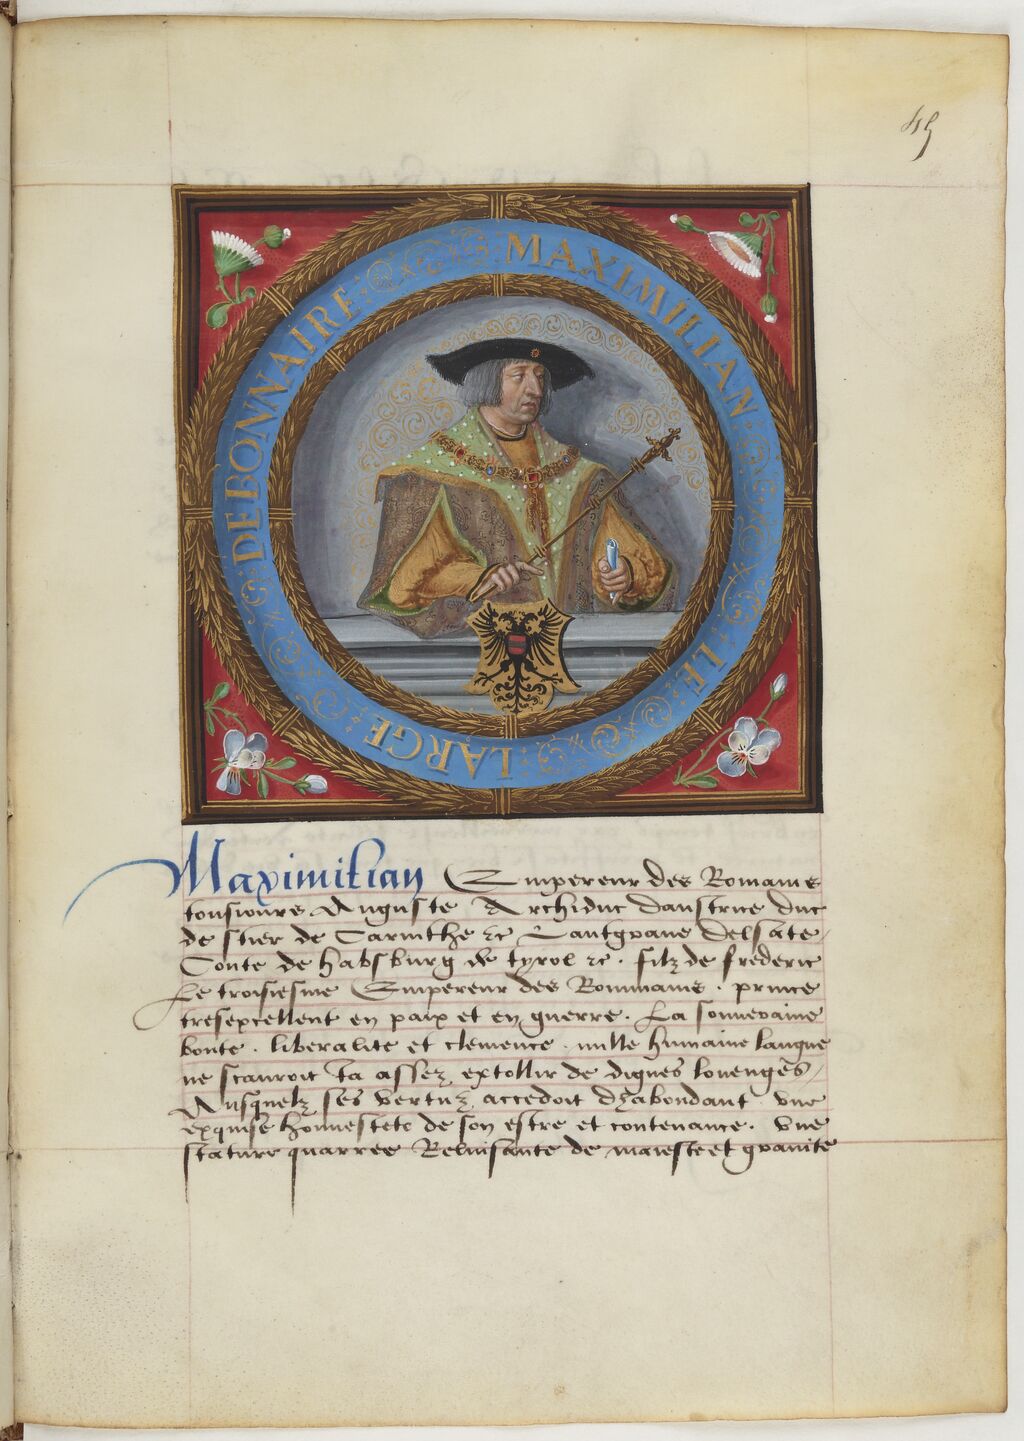 45
MAXIMILIAN · LE · LARGE · DEBONNAIRE
Maximilian Empereur des Romains
tousiours Auguste Archiduc daustrice duc
de stier de Carinthe &c Lantgrave Delsate /
Conte de habsburg de tyrol &c . filz de frederic
Le troisiesme Empereur des Rommains . prince
tresexcellent en paix et en guerre . La souveraine
bonte . liberalite et clemence . nulle humaine langue
ne scauroit ia assez extollir de dignes louenges /
Ausquelz ses vertuz accedoit dhabondant vne
exquise honnestete de son estre et contenance . vne
stature quarree Reluisante de maieste et gravite